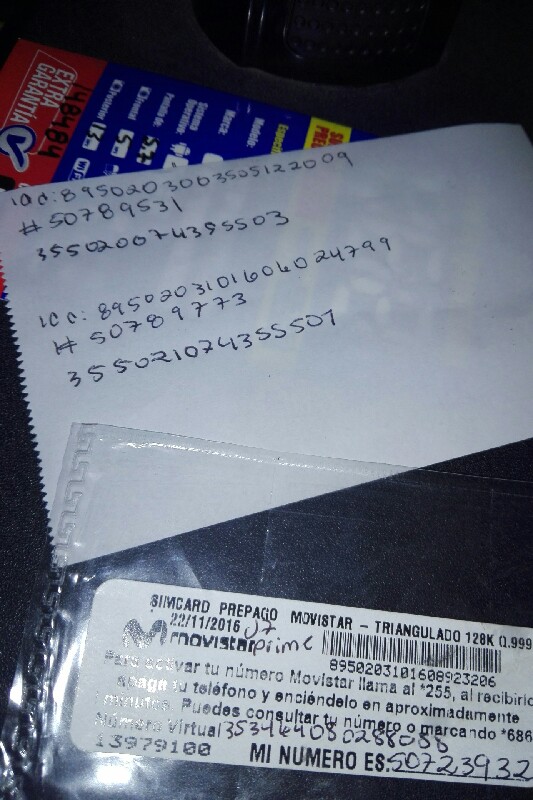 EXTRA
GARANTÍA
148484
icc: 8950203003505122009
# 50789531
355020074395503
icc: 8950203101606024799
# 50789773
355021074355507
SIMCARD PREPAGO MOVISTAR - TRIANGULADO 128K Q.999
22/11/2016 07
movistar prime
8950203101608923206
Para activar tu número Movistar llama al *255, al recibirlo
apaga tu teléfono y enciéndelo en aproximadamente
minutos. Puedes consultar tu número o marcando *686
Número Virtual 353464080288088
13979100 MI NUMERO ES: 50723932